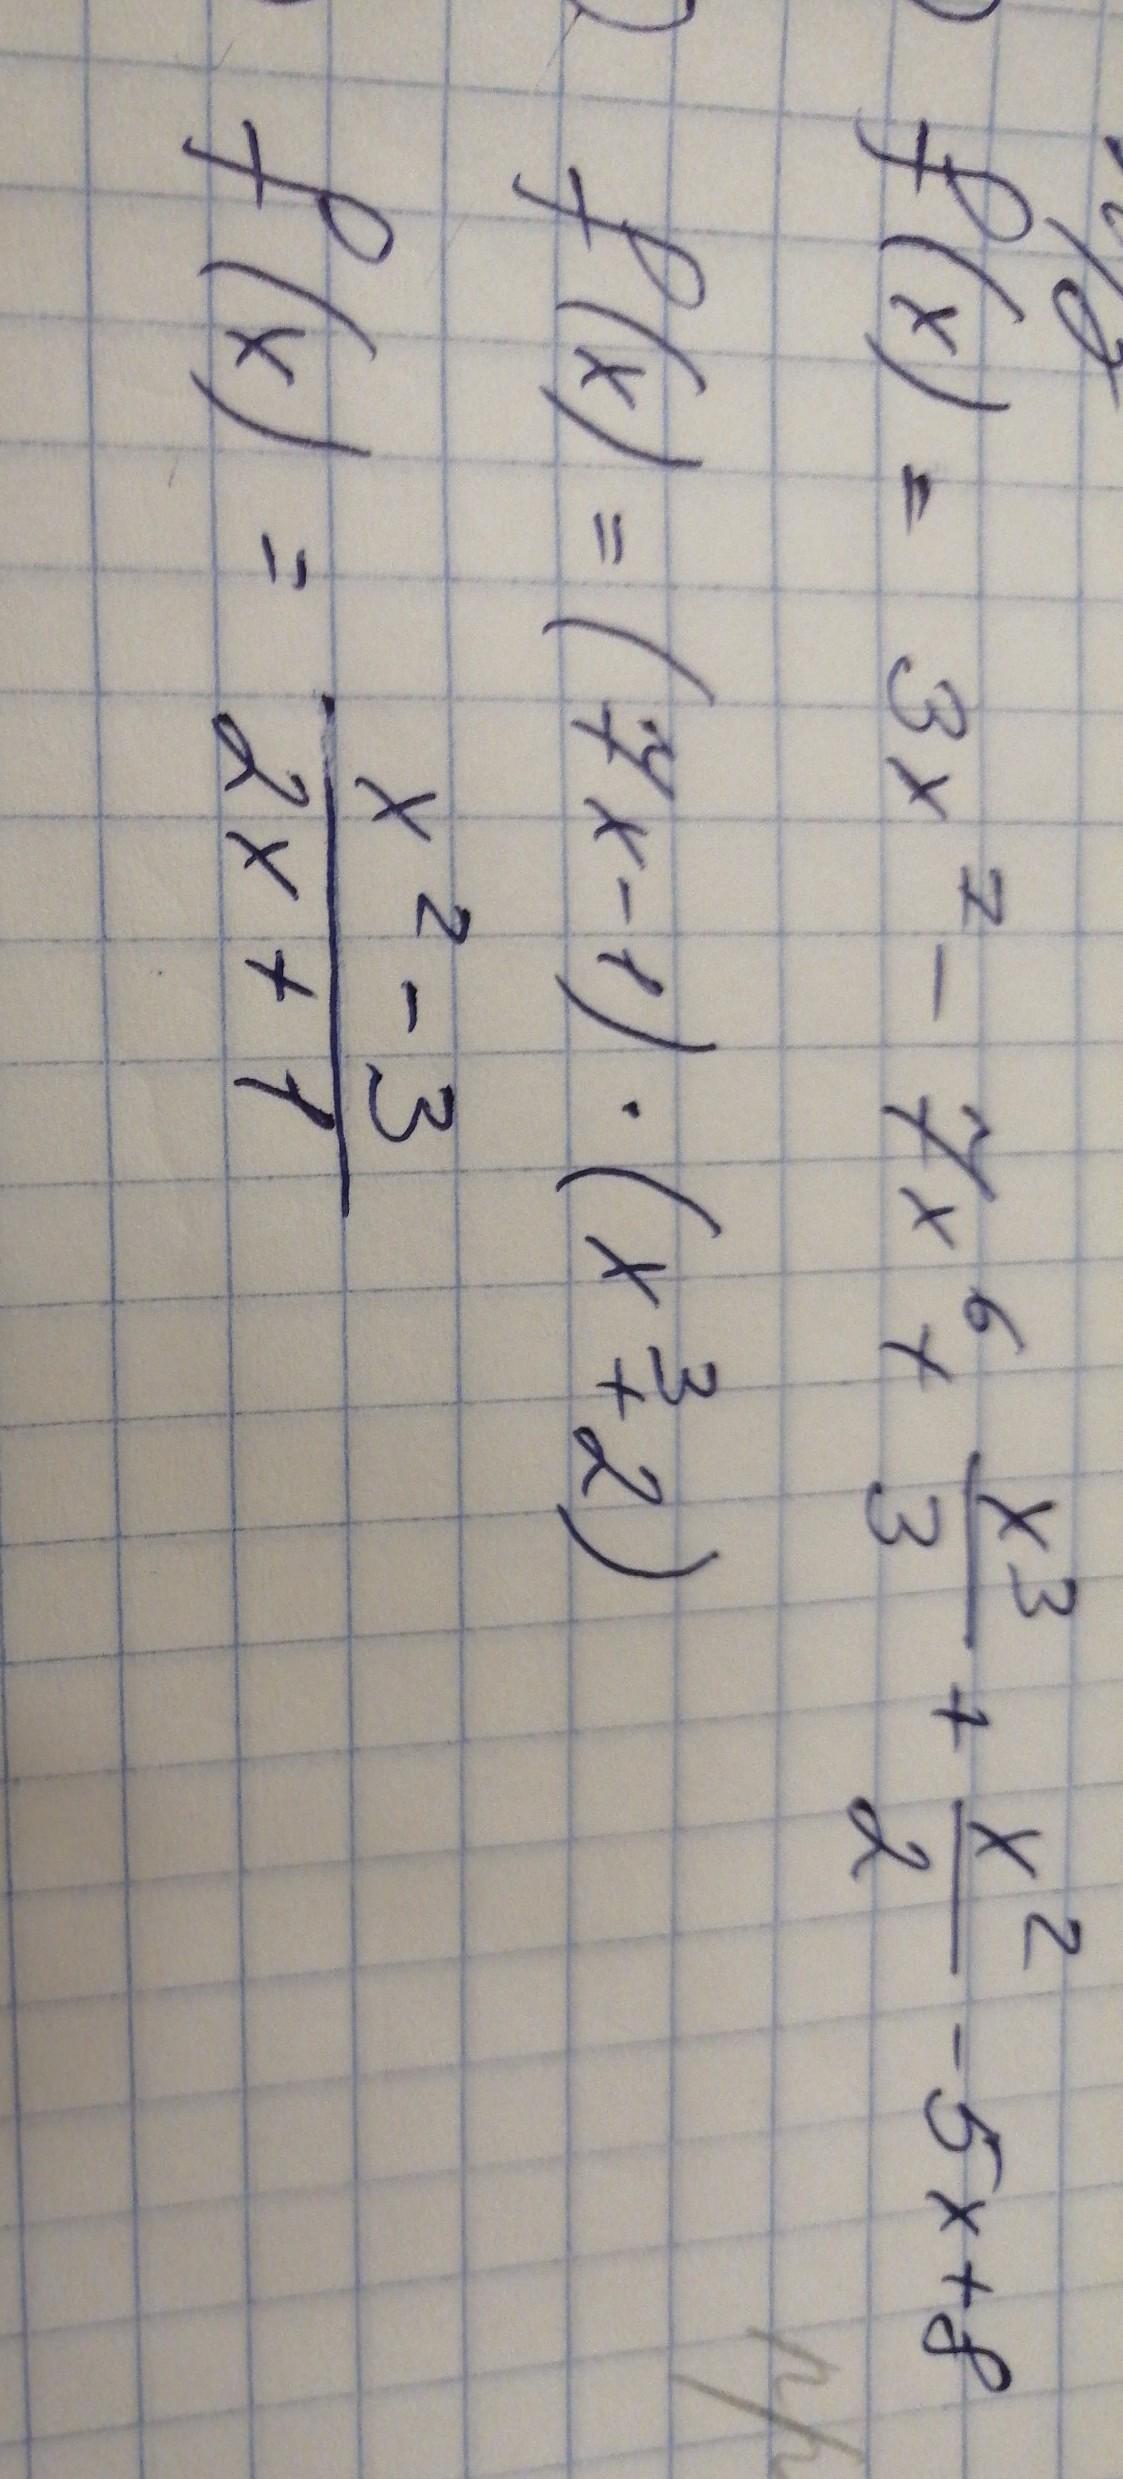 f(x) = 3x⁷ - 7x⁶ + x³/3 + x²/2 - 5x + 8
f(x) = (7x - 1) · (x³ + 2)
f(x) = (x² - 3)/(2x + 1)